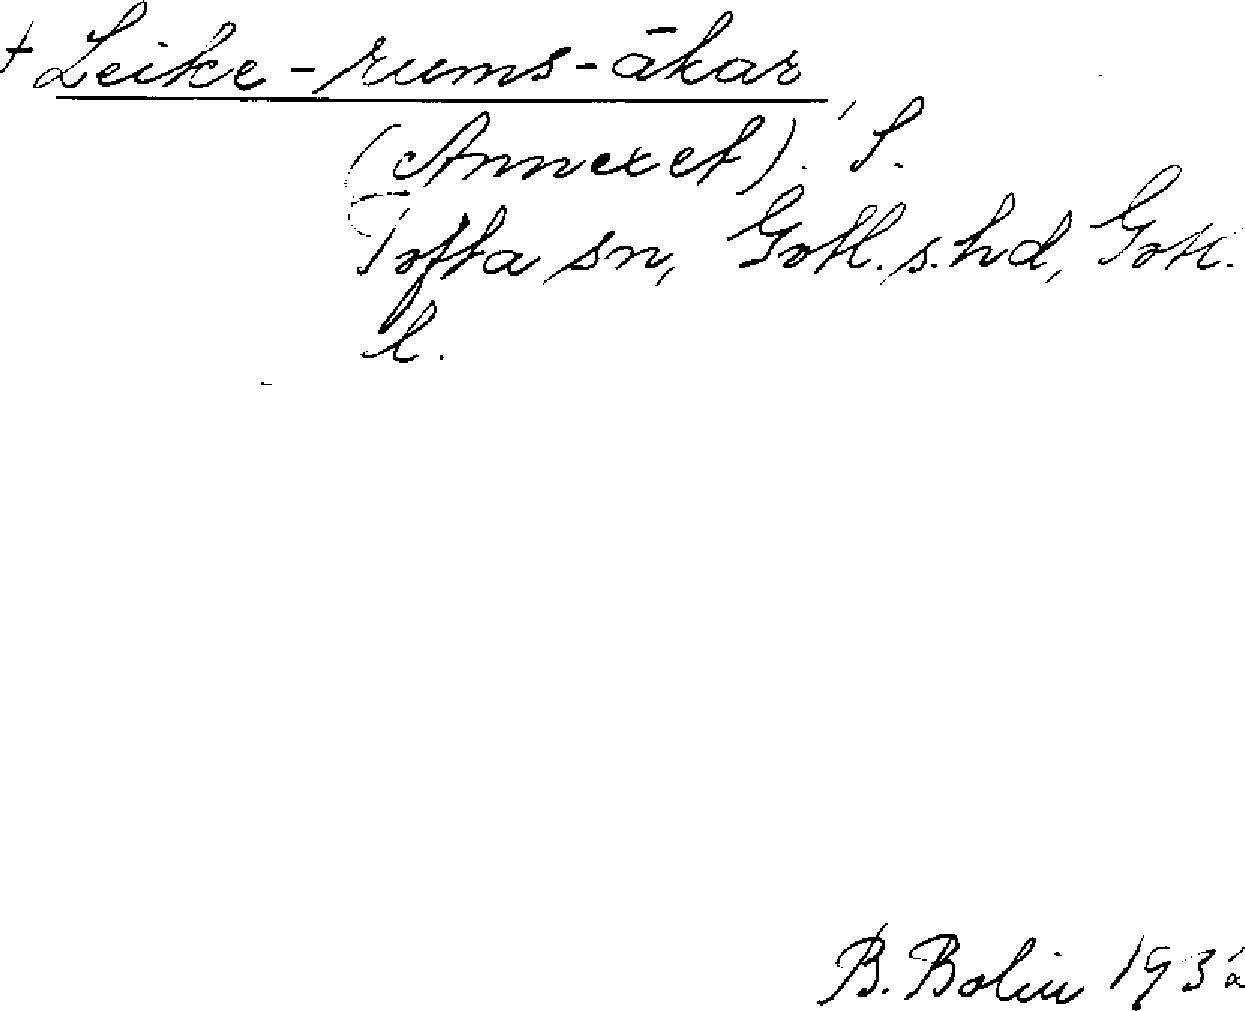 + Leike-rums-ākar,
(Annexet). S.
Tofta sn, Gotl. s. hd, Gotl.
l.
B. Bolin 1932